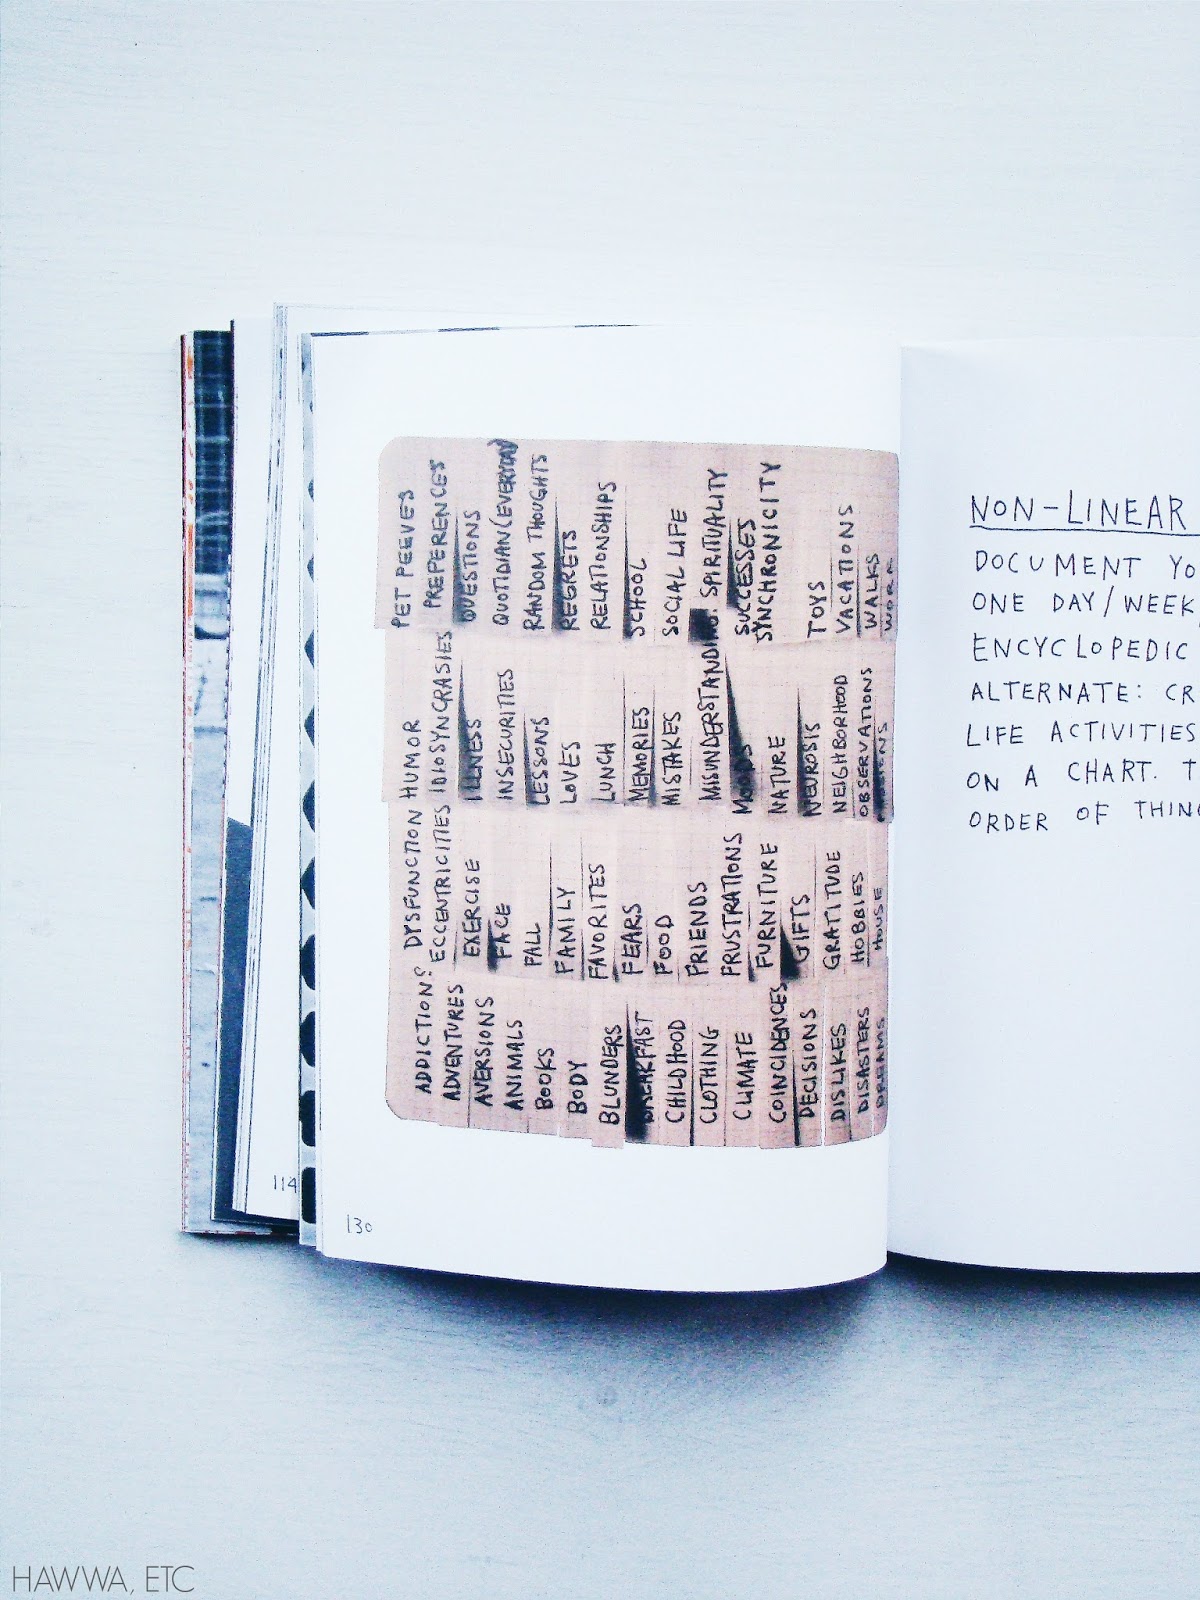 ADDICTION?
ADVENTURES
AVERSIONS
ANIMALS
BOOKS
BODY
BLUNDERS
BREAKFAST
CHILDHOOD
CLOTHING
CLIMATE
COINCIDENCES
DECISIONS
DISLIKES
DISASTERS
DREAMS
DYSFUNCTION
ECCENTRICITIES
EXERCISE
FACE
FALL
FAMILY
FAVORITES
FEARS
FOOD
FRIENDS
FRUSTRATIONS
FURNITURE
GIFTS
GRATITUDE
HOBBIES
HOUSE
HUMOR
IDIOSYNCRASIES
ILLNESS
INSECURITIES
LESSONS
LOVES
LUNCH
MEMORIES
MISTAKES
MISUNDERSTANDING
MOODS
NATURE
NEUROSIS
NEIGHBORHOOD
OBSERVATIONS
PET PEEVES
PREFERENCES
QUESTIONS
QUOTIDIAN (EVERYDAY
RANDOM THOUGHTS
REGRETS
RELATIONSHIPS
SCHOOL
SOCIAL LIFE
SPIRITUALITY
SUCCESSES
SYNCHRONICITY
TOYS
VACATIONS
WALKS
WORK
114
130
NON-LINEAR
DOCUMENT YO
ONE DAY/WEEK,
ENCYCLOPEDIC
ALTERNATE: CR
LIFE ACTIVITIES
ON A CHART. T
ORDER OF THING
HAWWA, ETC